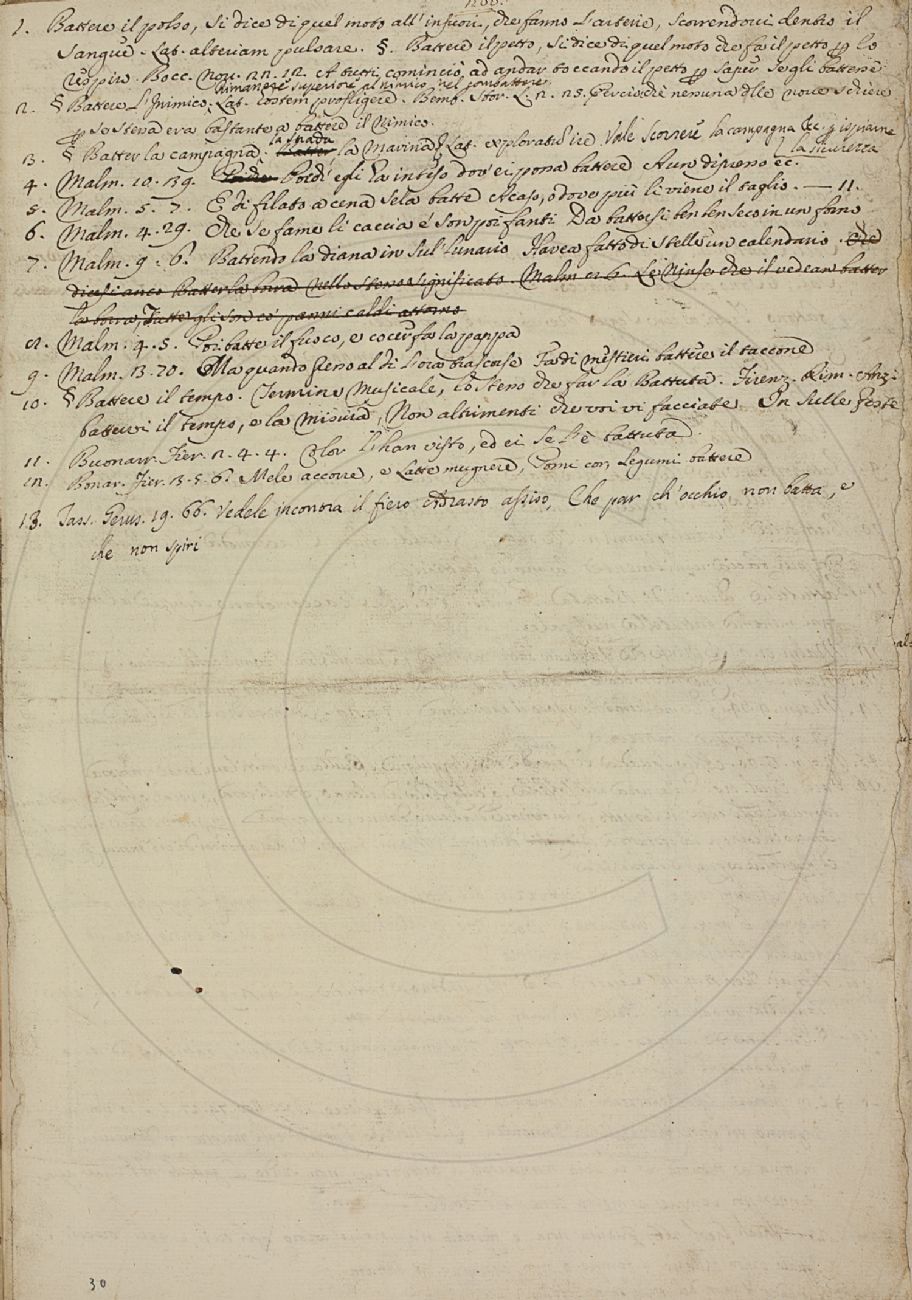 1. Battere il polso, si dice di quel moto all'infuori, che fanno l'arterie, scorrendovi dentro il
sangue. Lat. alteriam pulsare. §. Battere il petto, si dice di quel moto che fa il petto p lo
respiro. Bocc. Nov. 77. 12. A tutti cominciò ad andar toccando il petto p saper se gli battesse
rimanere superiore al nimico nel combattere
2. § Battere l'Inimico. Lat. hostem profligere. Bemb. Stor. L. 2. 25. Perciocchè nessuna dlle nove schiere
p se stessa era bastante a battere il Nimico.
la strada
3. § Batter la campagna, la Marina &. Lat. explorat Vale scorrere la campagna &c. p ispiarne la sicurezza
4. Malm. 10. 39. Perch' egli ha inteso dov' ei possa battere A un dipresso ec.
5. Malm. 5. 7. E di filato a cena se la batte A caso, o dove più li viene il taglio. — 11.
6. Malm. 4. 29. Che se fame li caccia e' son poi fanti Da battersi ben ben seco in un forno
7. Malm. 9. 6. Battendo la diana in sul Lunario Havea fatto di stelle un calendario. Che
dicesi anco Batter la borra nello stesso significato. Malm 8. 6. Le Ninfe che il vedean batter
la borra, Tutte gli son co' panni caldi attorno
8. Malm. 4. 5. Poi batte il fuoco, e cocer fa la pappa
9. Malm. 3. 20. Ma quando fieno al dì l'ora trascorse Fa di mistieri battere il taccone
10. § Battere il tempo. Termine Musicale, lo stesso che far la Battuta. Firenz. Rim. Anzi
battervi il tempo, e la misura, Non altrimenti che voi vi facciate In sulle feste
11. Buonarr. Fier. 2. 4. 4. Color l'han visto, ed ei se l'è battuta
12. Bonar. Fier. 3. 5. 6. Mele accorre, e Latte mugnere, Pomi cor, Legumi battere
13. Tass. Gerus. 19. 66. Vedele incontra il fiero Adrasto assiso, Che par ch'occhio non batta, e
che non spiri
30